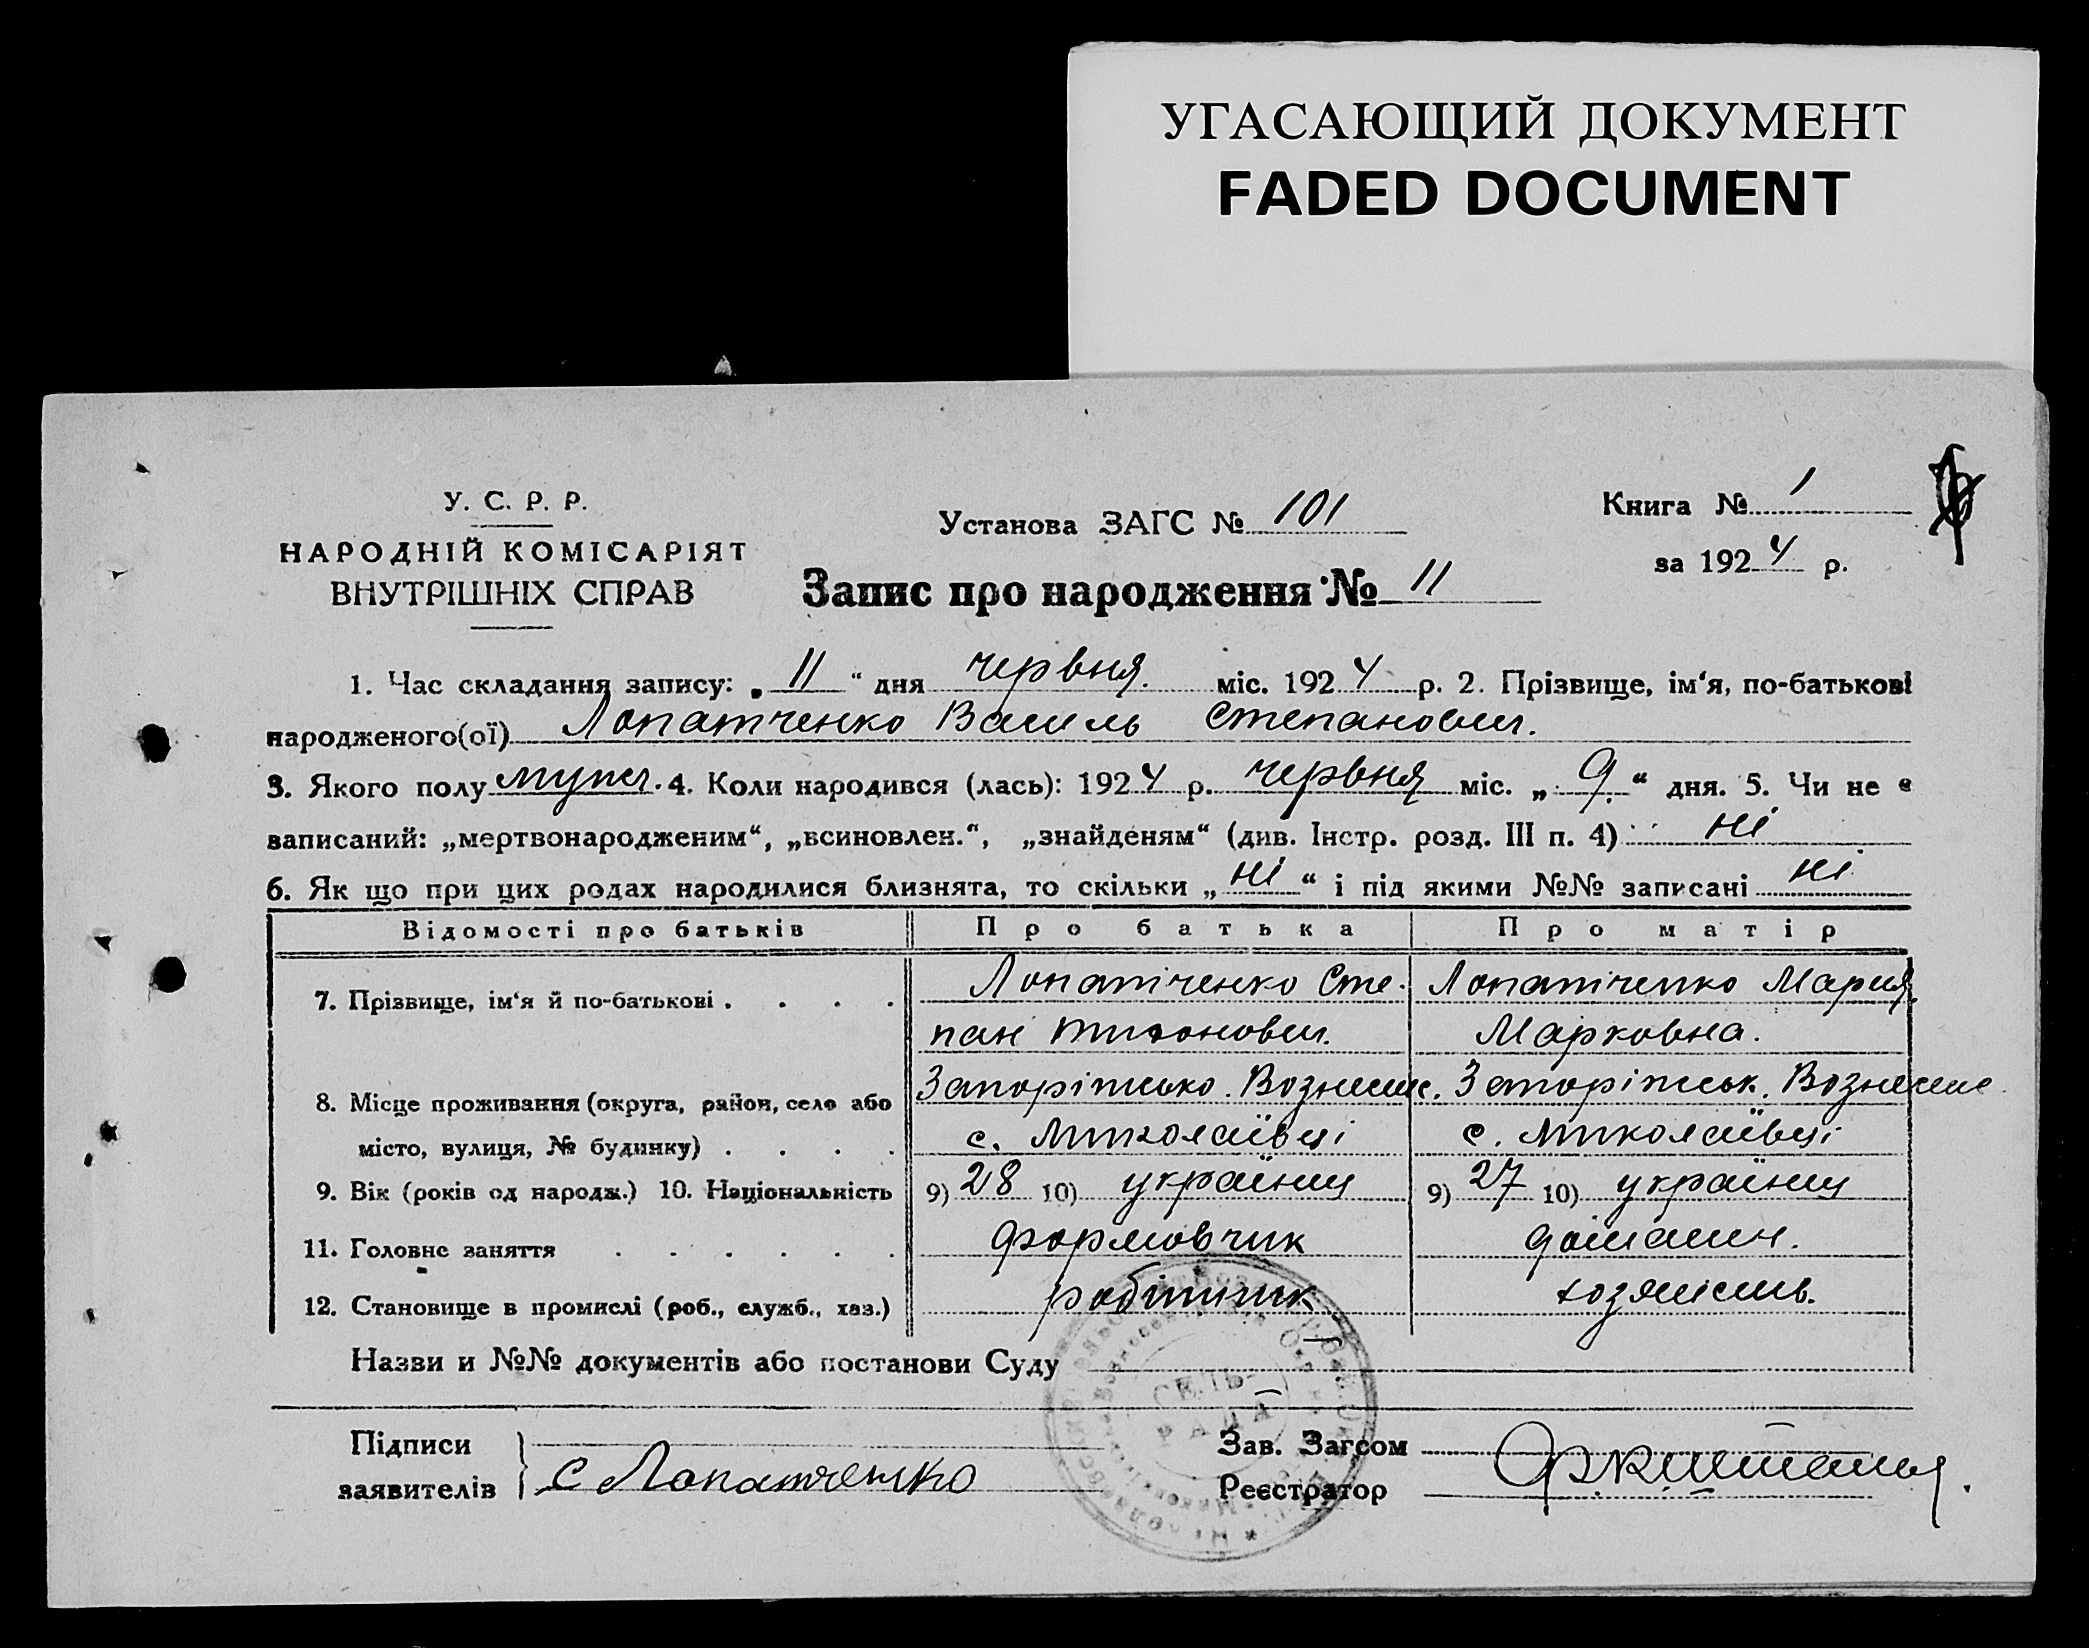 УГАСАЮЩИЙ ДОКУМЕНТ
FADED DOCUMENT
У. С. Р. Р.
НАРОДНІЙ КОМІСАРІЯТ
ВНУТРІШНІХ СПРАВ
Установа ЗАГС № 101
Книга № 1
за 1924 р.
Запис про народження № 11
1. Час складання запису: „ 11 “ дня червня. міс. 1924 р. 2. Прізвище, ім‘я, по-батькові
народженого(ої) Лопатченко Василь Степанович.
3. Якого полу мужч. 4. Коли народився (лась): 1924 р. червня міс. „ 9. “ дня. 5. Чи не є
записаний: „мертвонародженим“, „всиновлен.“, „знайденям“ (див. Інстр. розд. III п. 4) ні
6. Як що при цих родах народилися близнята, то скільки „ ні “ і під якими №№ записані ні
Відомості про батьків Про батька Про матір
7. Прізвище, ім‘я й по-батькові . . . . Лопатіченко Сте- Лопатіченко Мария
пан Тихонович. Марковна.
8. Місце проживання (округа, район, село або Запоріжсько. Вознесенс. Запоріжськ. Вознесенс
місто, вулиця, № будинку) . . . . с. Миколаївці с. Миколаївці
9. Вік (років од народж.) 10. Національність 9) 28 10) українц 9) 27 10) українц
11. Головне заняття . . . . . . формовчик домашн.
12. Становище в промислі (роб., служб., хаз.) робітник хозяйств.
Назви и №№ документів або постанови Суду
СЕЛЬ-
РАДА
Підписи
заявителів С Лопатченко
Зав. Загсом
Реєстратор